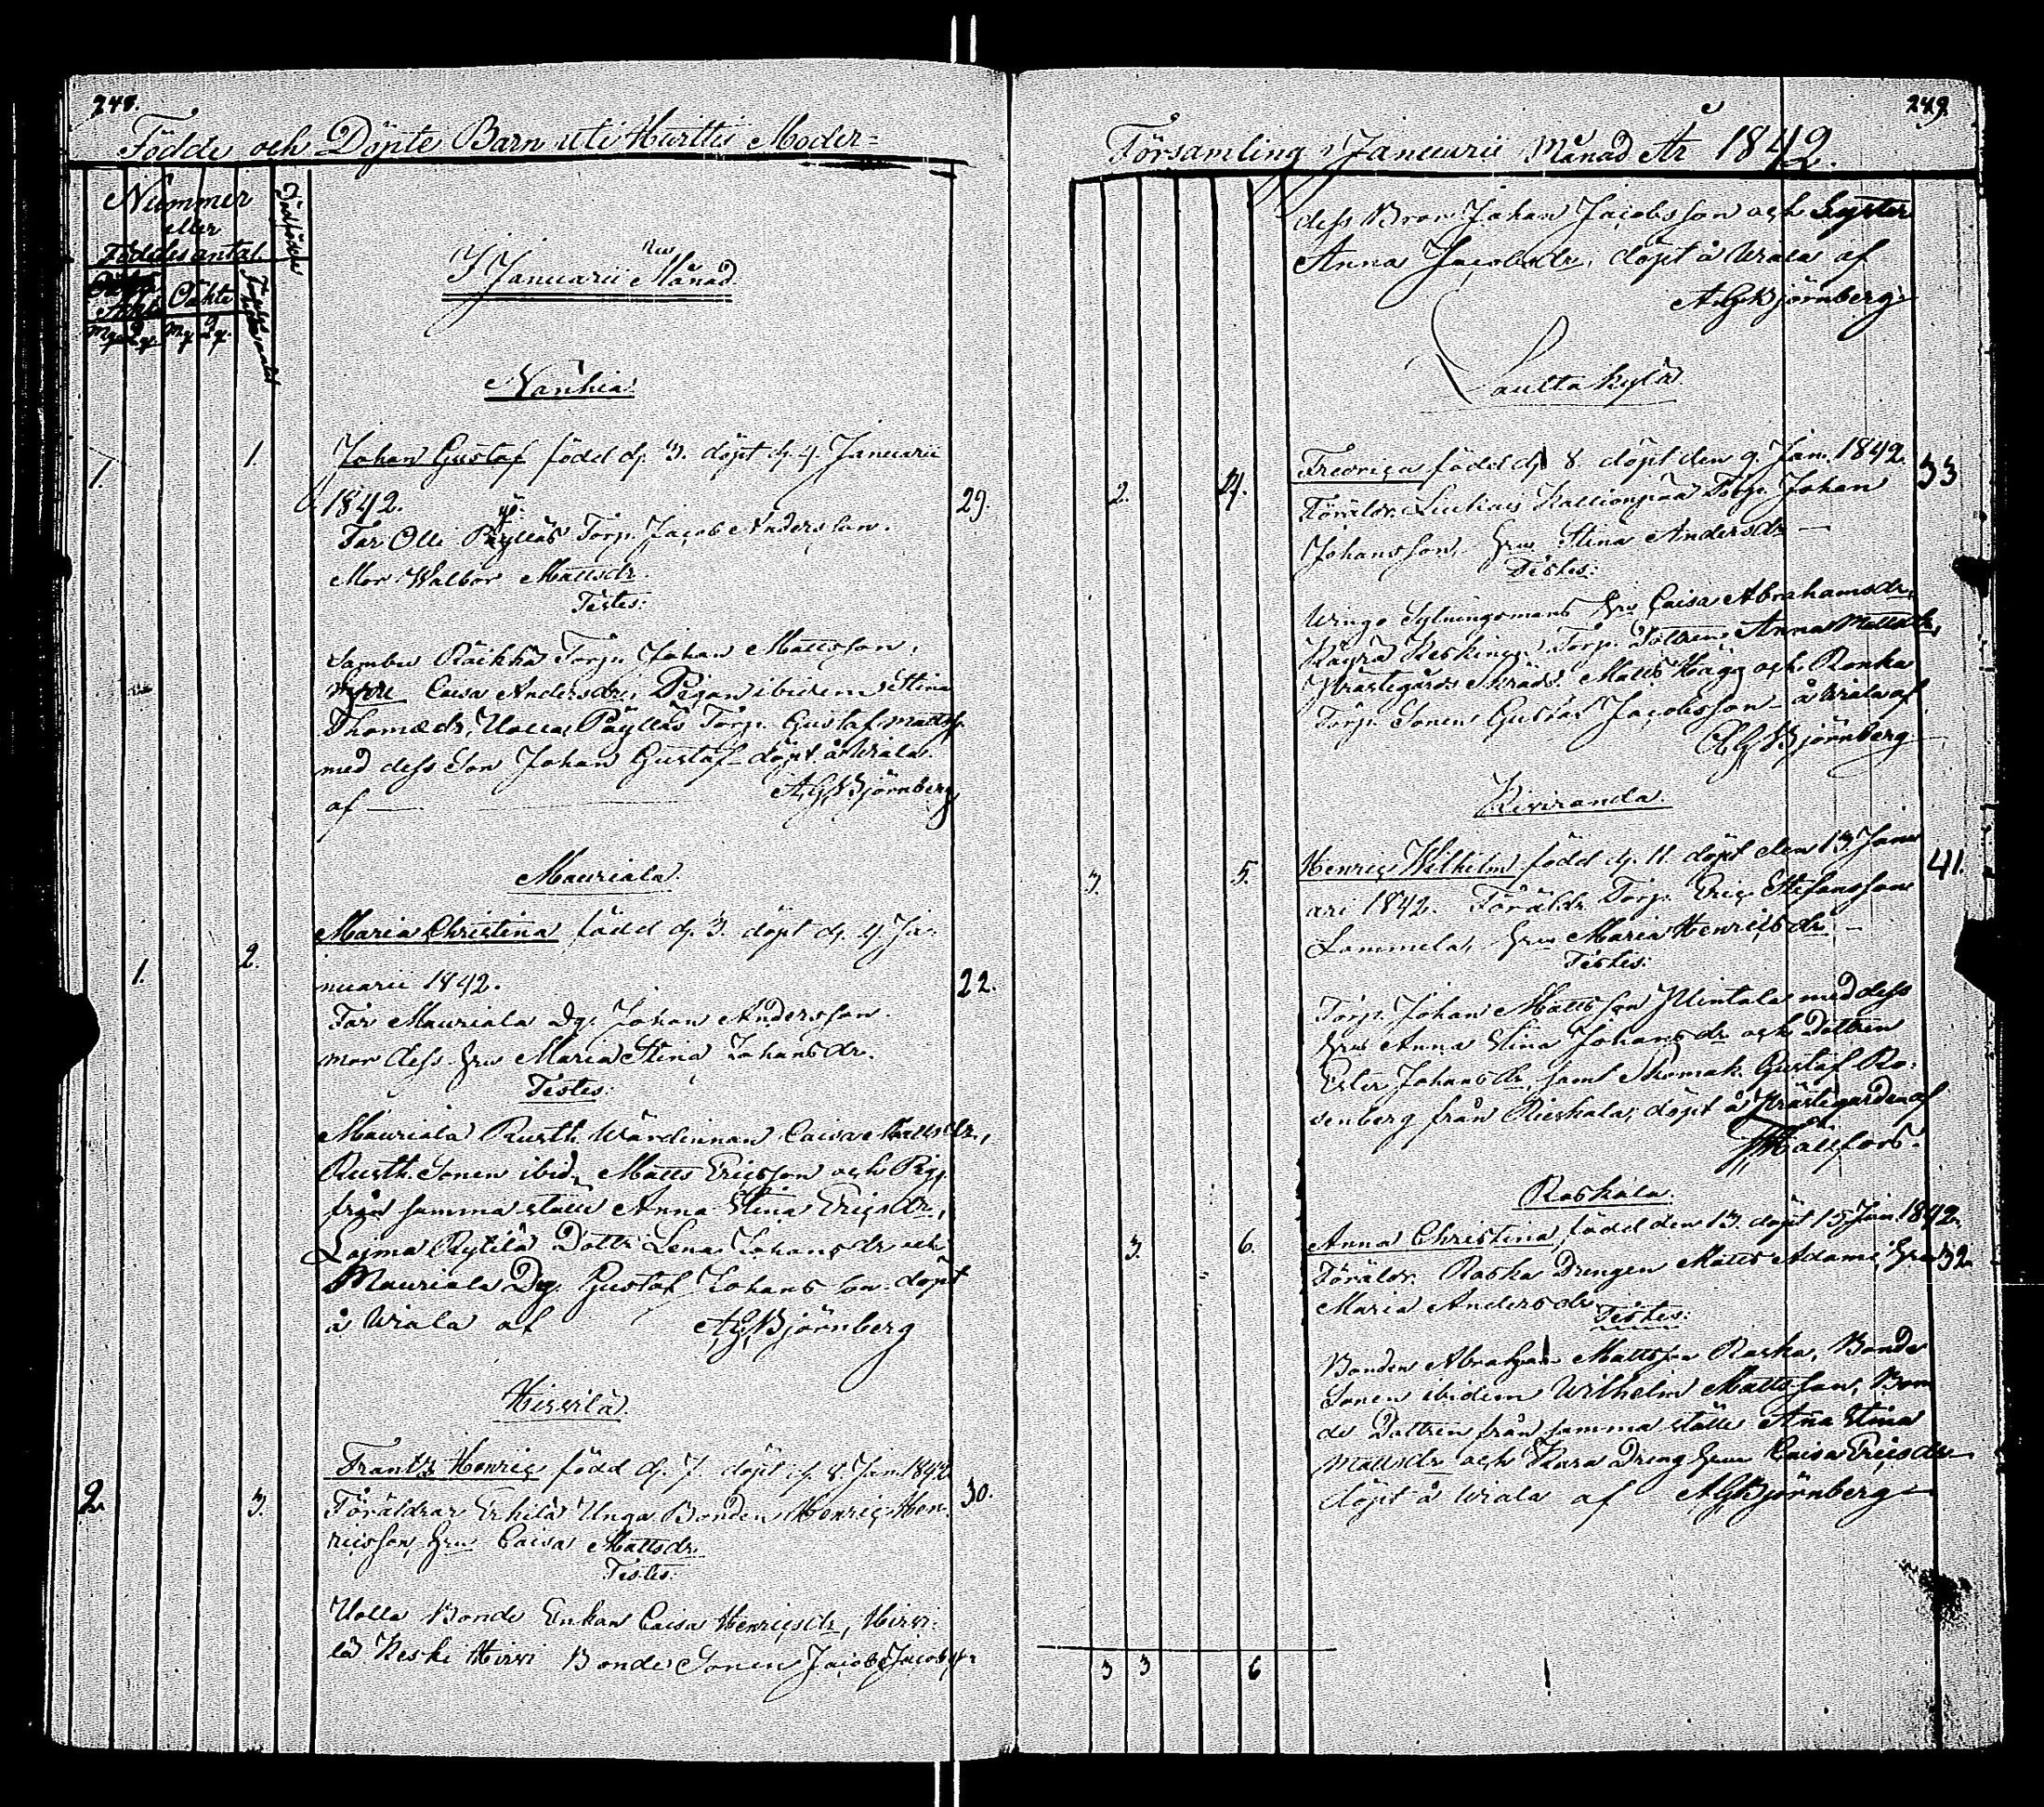 248.
Födde och Döpte Barn uti Hurttis Moder=
Nummer
eller
Födelses antal
Dödfödde
Äkta
Oäkta
M. Q. M. Q.
I Januarii Månad
Nanhia.
1. 1. Johan Gustaf född d. 3. döpt d. 4. Januarii
1842. 29.
Far Olli Päylläs Torp. Jacob Andersson.
Mor Walbor Mattsdr.
Testes:
Sambu Räikkä Torp. Johan Mattsson,
Caisa Andersdr, Pigan ibidem Stina
Thomædr, Uolla, Päylläs Torp. Gustaf Mattss.
med dess Son Johan Gustaf döpt å Wiala.
af A.G. Björnberg
Mauriala.
Maria Christina född d. 3. döpt d. 4. Ja-
1. 2. nuarii 1842. 22.
Far Mauriala Dg. Johan Andersson.
mor dess hru Maria Stina Johansdr.
Testes:
Mauriala Rusth. Wärdinnan Caisa Mattsdr.,
Rusth. Sonen ibid. Matts Ericsson och Pig.
från samma ställe Anna Stina Ericsdr,
Lojma Rytilä Dottr. Lena Johansdr och
Mauriala Dg. Gustaf Johansson. döpt
å Wiala af A.G. Björnberg
Hirvilä.
Frantz Henric född d. 7. döpt d. 8. Jan. 1842
2. 3. Föräldrar Erkilä Unga Bonden Henric Hen- 30.
ricsson, hru Caisa Mattsdr.
Testes:
Uolla Bonde Enkan Caisa Henricsdr, Hirvi-
lä Keski Hirvi Bonde Sonen Jacob Jacobss.
249.
Församling i Januarii Månad År 1842.
dess Bror Johan Jacobsson och Syster
Anna Jacobsdr, döpt å Wiala af
A.G. Björnberg
Lauttakylä.
Fredrica född d. 8. döpt den 9. Jan. 1842. 33
2. 4. Föräldr. Liukais Kallionpää Torp. Johan
Johansson, hru Stina Andersdr
Testes:
hru Caisa Abrahamsdr,
Käyrä Keskinen Torp. Dottren Anna Mattsdr,
Prästegårds Matts Hägg och Ronka
Torp. Sonen Gustaf Jacobsson å Wiala af
A.G. Björnberg
Kiviranda.
3. 5. Henric Wilhelm född d. 11. döpt den 13. Janu 41.
ari 1842. Föräldr. Torp. Eric Stefansson
Lammela, hru Maria Henricsdr
Testes:
Torp. Johan Mattsson Uintala med dess
hru Anna Stina Johansdr och Dottren
Ester Johansdr, samt Skomak. Gustaf Ro-
senberg från Rieskala; döpt å Prästegården af
Hällfors.
Raskala.
3. 6. Anna Christina född den 13. döpt 15. Jan. 1842.
Föräldr. Raska Drengen Matts Adami, hru 32.
Maria Andersdr
Testes:
Bonden Abraham Mattsson Raska, Bonde
Sonen ibidem Wilhelm Mattsson, Bon
de Dottren från samma ställe Anna Stina
Mattsdr och Kara Dreng hru Caisa Ericsdr
döpt å Wiala af A.G. Björnberg
3 3 6